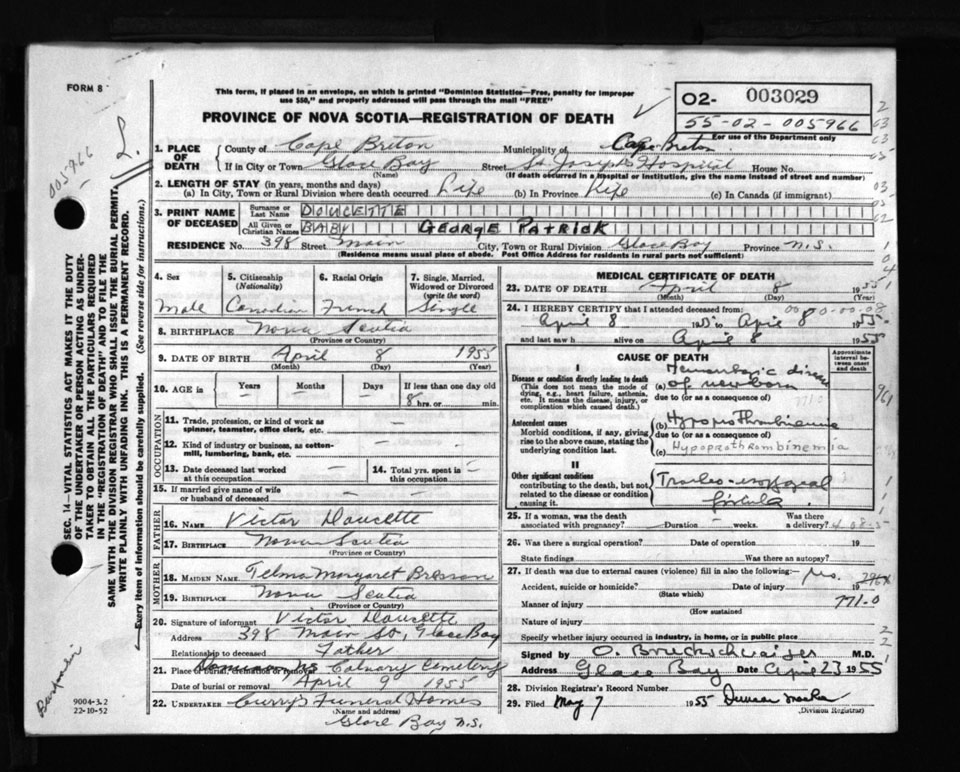 FORM 8
This form, if placed in an envelope, on which is printed "Dominion Statistics—Free, penalty for improper
use $50," and properly addressed will pass through the mail "FREE"
PROVINCE OF NOVA SCOTIA—REGISTRATION OF DEATH
02- 003029
55-02-005966
For use of the Department only
005966
L.
1. PLACE OF DEATH
County of Cape Breton Municipality of Cape Breton
If in City or Town Glace Bay Street St Joseph's Hospital House No.
(Name) (If death occurred in a hospital or institution, give the name instead of street and number)
2. LENGTH OF STAY (in years, months and days)
(a) In City, Town or Rural Division where death occurred Life (b) In Province Life (c) In Canada (if immigrant)
3. PRINT NAME OF DECEASED
Surname or Last Name DOUCETTE
All Given or Christian Names BABY GEORGE PATRICK
RESIDENCE No. 398 Street Main City, Town or Rural Division Glace Bay Province N.S.
(Residence means usual place of abode. Post Office Address for residents in rural parts not sufficient)
4. Sex
Male
5. Citizenship (Nationality)
Canadian
6. Racial Origin
French
7. Single, Married, Widowed or Divorced (write the word)
Single
8. BIRTHPLACE Nova Scotia
(Province or Country)
9. DATE OF BIRTH April 8 1955
(Month) (Day) (Year)
10. AGE in Years Months Days If less than one day old
8 hrs. or min.
OCCUPATION
11. Trade, profession, or kind of work as spinner, teamster, office clerk, etc.
12. Kind of industry or business, as cotton-mill, lumbering, bank, etc.
13. Date deceased last worked at this occupation
14. Total yrs. spent in this occupation
15. If married give name of wife or husband of deceased
FATHER
16. NAME Victor Doucette
17. BIRTHPLACE Nova Scotia
(Province or Country)
MOTHER
18. MAIDEN NAME Telma Margaret
19. BIRTHPLACE Nova Scotia
(Province or Country)
20. Signature of informant Victor Doucette
Address 398 Main St, Glace Bay
Relationship to deceased Father
21. Place of burial, cremation or removal Calvary Cemetery
Date of burial or removal April 9 1955
22. UNDERTAKER Curry's Funeral Homes
(Name and address)
Glace Bay N.S.
MEDICAL CERTIFICATE OF DEATH
23. DATE OF DEATH April 8 1955
(Month) (Day) (Year)
24. I HEREBY CERTIFY that I attended deceased from
April 8 1955 to April 8 1955
and last saw h alive on April 8 1955
CAUSE OF DEATH
Approximate interval between onset and death
I
Disease or condition directly leading to death
(This does not mean the mode of dying, e.g., heart failure, asthenia, etc. It means the disease, injury, or complication which caused death.)
(a) Hemorrhagic disease of newborn
due to (or as a consequence of)
Antecedent causes
Morbid conditions, if any, giving rise to the above cause, stating the underlying condition last.
(b)
due to (or as a consequence of)
(c) Hypoprothrombinemia
II
Other significant conditions
contributing to the death, but not related to the disease or condition causing it.
fistula
25. If a woman, was the death associated with pregnancy? Duration weeks. Was there a delivery?
26. Was there a surgical operation? Date of operation 19
State findings Was there an autopsy?
27. If death was due to external causes (violence) fill in also the following:
Accident, suicide or homicide? Date of injury 19
(State which)
Manner of injury 771.0
(How sustained)
Nature of injury
Specify whether injury occurred in industry, in home, or in public place
Signed by M.D.
Address Glace Bay Date April 23 1955
28. Division Registrar's Record Number
29. Filed May 7 1955
(Division Registrar)
SEC. 14—VITAL STATISTICS ACT MAKES IT THE DUTY
OF THE UNDERTAKER OR PERSON ACTING AS UNDER-
TAKER TO OBTAIN ALL THE PARTICULARS REQUIRED
IN THE "REGISTRATION OF DEATH" AND TO FILE THE
SAME WITH THE DIVISION REGISTRAR WHO SHALL ISSUE THE BURIAL PERMIT.
WRITE PLAINLY WITH UNFADING INK. THIS IS A PERMANENT RECORD.
Every item of information should be carefully supplied. (See reverse side for instructions.)
9004-3.2
22-10-52